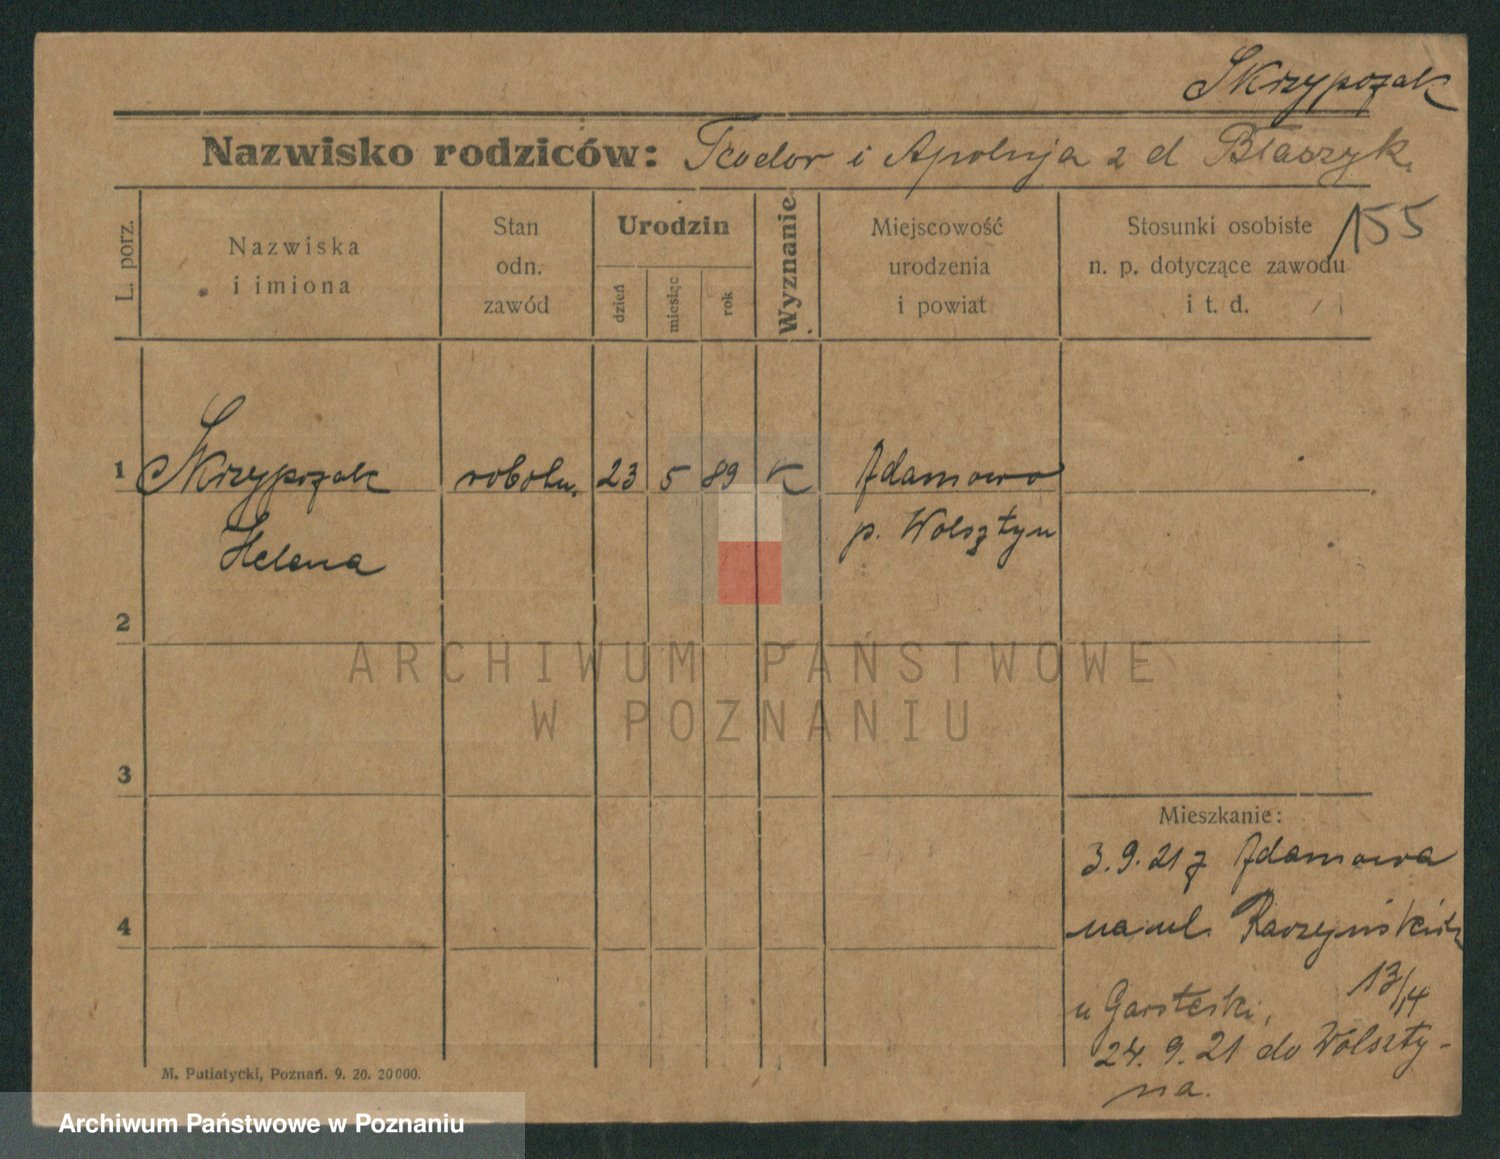 Skrzypczak
Nazwisko rodziców: Teodor i Apolonja z d Błaszyk.
155
L. porz.
Nazwiska
i imiona
Stan
odn.
zawód
Urodzin
dzień
miesiąc
rok
Wyznanie
Miejscowość
urodzenia
i powiat
Stosunki osobiste
n. p. dotyczące zawodu
i t. d.
1 Skrzypczak robotn. 23 5 89 K Adamowo
Helena p. Wolsztyn
2
3
4
Mieszkanie:
3.9.21 z Adamowa
na ul. Raczyńskich
13/14
u
24.9.21 do Wolszty-
na.
M. Putiatycki, Poznań. 9. 20. 20000.
ARCHIWUM PAŃSTWOWE
W POZNANIU
Archiwum Państwowe w Poznaniu